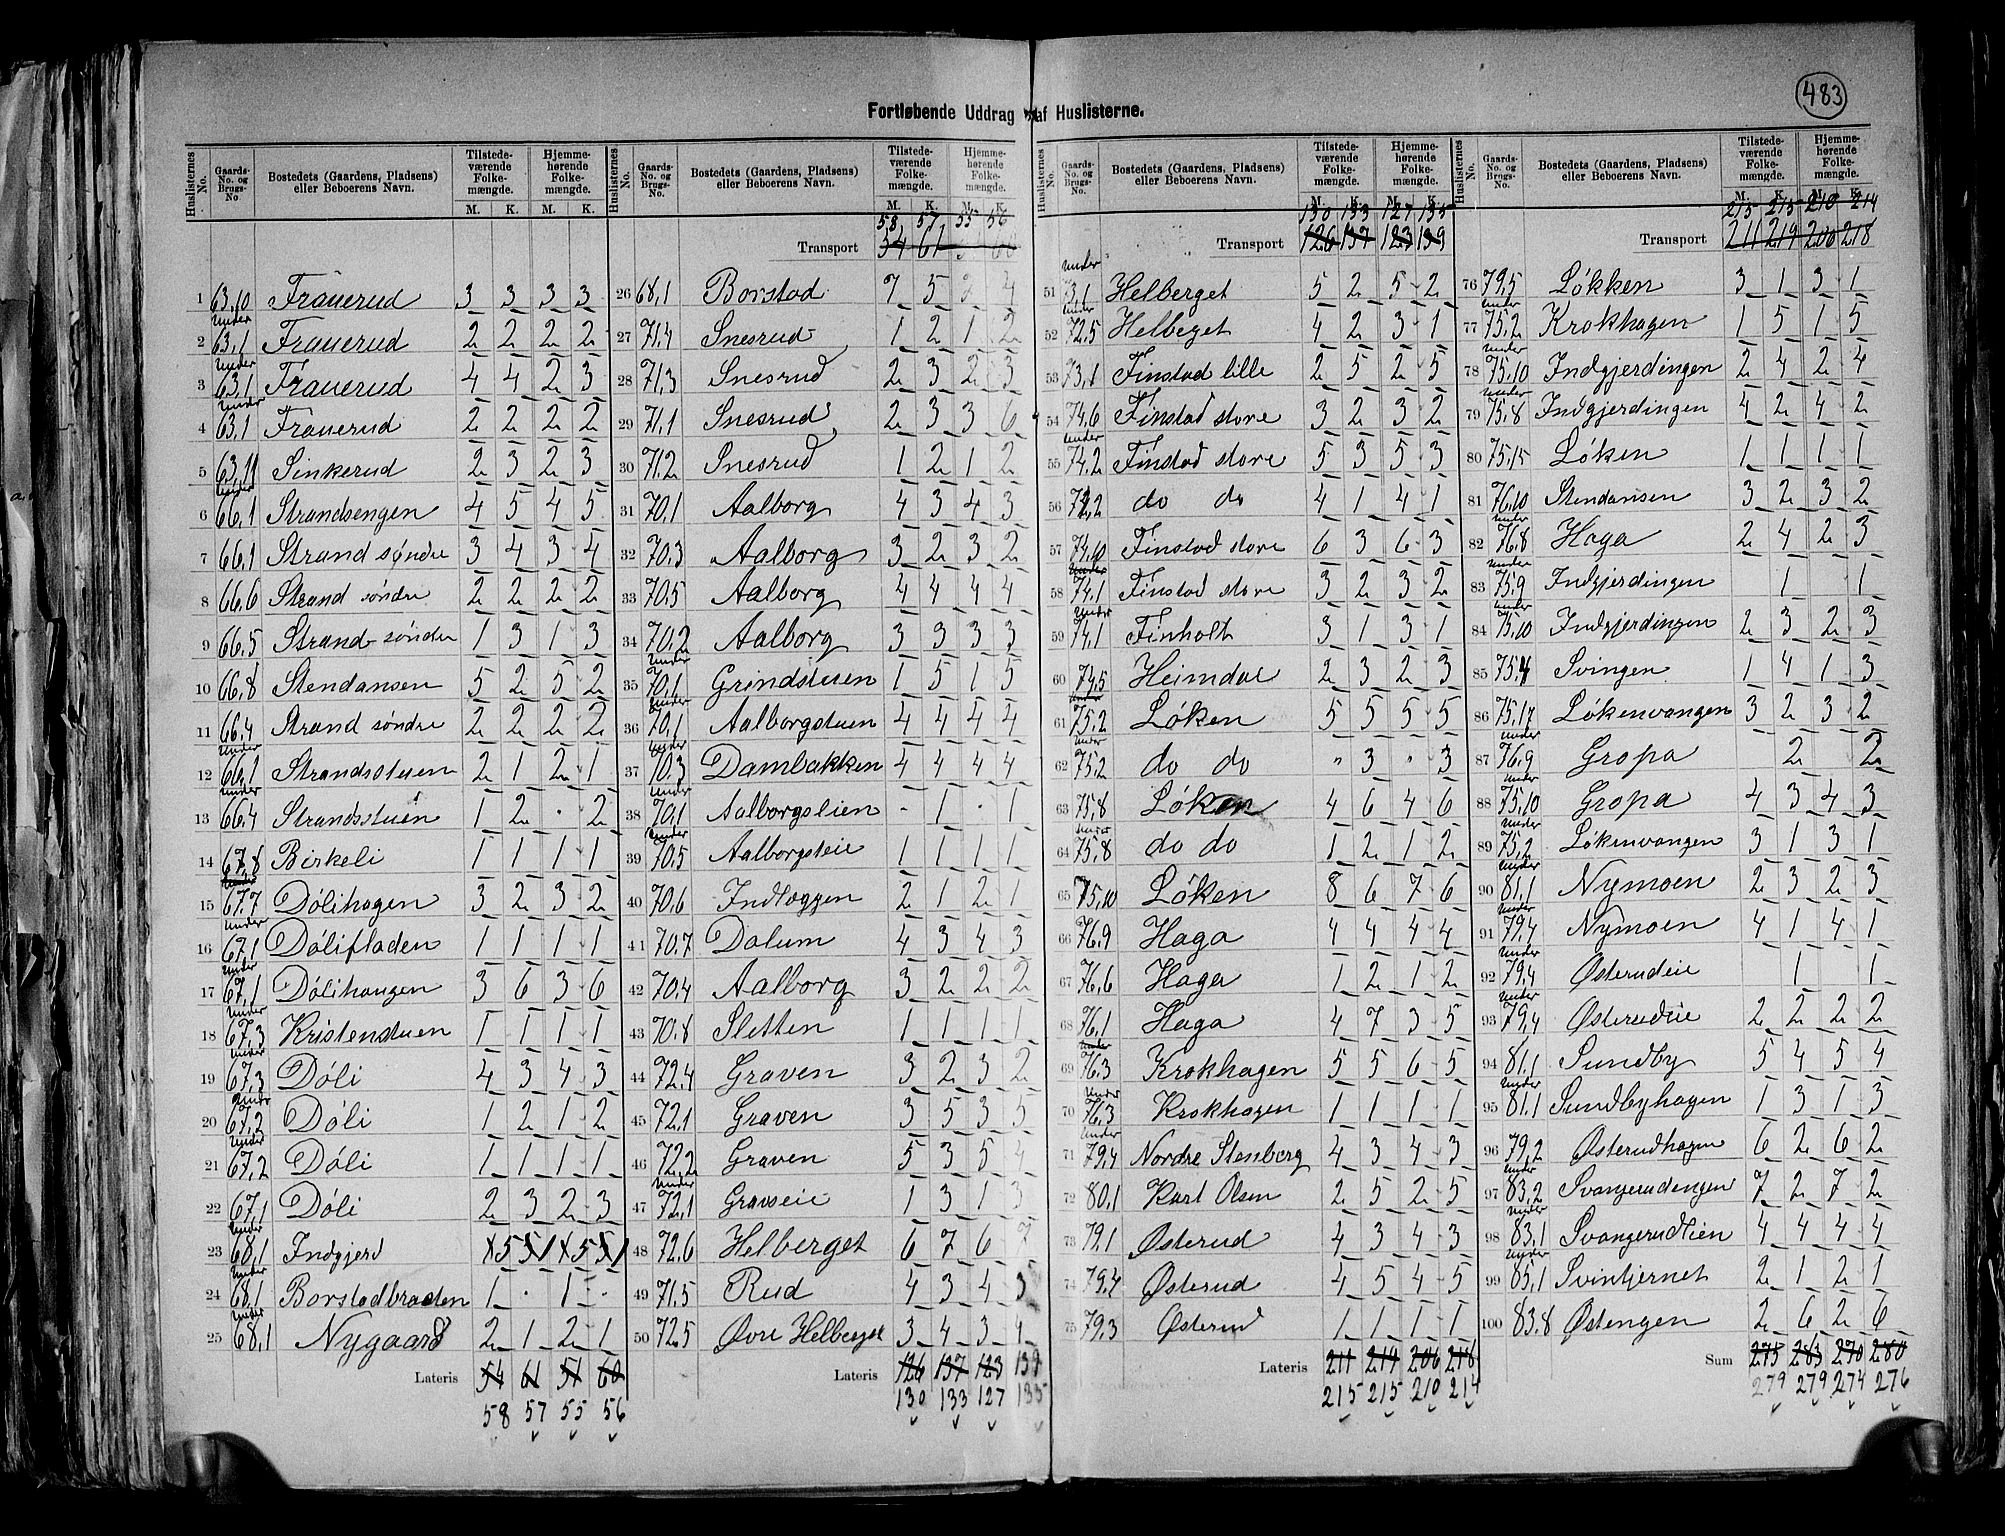 483
Fortløbende Uddrag af Huslisterne.
Huslisternes No. | Gaards-No. og Brugs-No | Bostedets (Gaardens, Pladsens) eller Beboerens Navn. | Tilstedeværende Folkemængde. M. K. | Hjemmehørende Folkemængde. M. K.
1 63,10 Frauerud 3 3 3 3
2 under 63,1 Frauerud 2 2 2 2
3 under 63,1 Frauerud 4 4 2 3
4 under 63,1 Frauerud 2 2 2 2
5 63,11 Sinkerud 2 3 2 3
6 under 66,1 Strandsengen 4 5 4 5
7 66,1 Strand søndre 3 4 3 4
8 66,6 Strand søndre 2 2 2 2
9 66,5 Strand søndre 1 3 1 3
10 66,8 Stendansen 5 2 5 2
11 66,4 Strand søndre 2 2 2 2
12 under 66,1 Strandsstuen 2 1 2 1
13 under 66,4 Strandsstuen 1 2 · 2
14 67,8 Birkeli 1 1 1 1
15 67,7 Dølihagen 3 2 3 2
16 under 67,1 Dølifladen 1 1 1 1
17 under 67,1 Dølihaugen 3 6 3 6
18 under 67,3 Kristenstuen 1 1 1 1
19 under 67,3 Døli 4 3 4 3
20 under 67,2 Døli 1 2 1 2
21 under 67,2 Døli 1 1 1 1
22 67,1 Døli 2 3 2 3
23 under 68,1 Indgjerd 5 1 5 1
24 under 68,1 Borstadbraaten 1 · 1 ·
25 under 68,1 Nygaard 2 1 2 1
Lateris 54 61 51 60
58 57 55 56
Huslisternes No. | Gaards-No. og Brugs-No. | Bostedets (Gaardens, Pladsens) eller Beboerens Navn. | Tilstedeværende Folkemængde. M. K. | Hjemmehørende Folkemængde. M. K.
58 57 55 56
Transport 54 61
26 68,1 Borstad 7 5 7 4
27 71,4 Snesrud 1 2 1 2
28 71,3 Snesrud 2 3 2 3
29 71,1 Snesrud 2 3 3 6
30 71,2 Snesrud 1 2 1 2
31 70,1 Aalborg 4 3 4 3
32 70,3 Aalborg 3 2 3 2
33 70,5 Aalborg 4 4 4 4
34 70,2 Aalborg 3 3 3 3
35 under 70,1 Grindstuen 1 5 1 5
36 under 70,1 Aalborgstuen 4 4 4 4
37 under 70,3 Dambakken 4 4 4 4
38 under 70,1 Aalborgslien · 1 · 1
39 under 70,5 Aalborgseie 1 1 1 1
40 70,6 Indlaggen 2 1 2 1
41 70,7 Dalum 4 3 4 3
42 70,4 Aalborg 3 2 2 2
43 70,8 Sletten 1 1 1 1
44 72,4 Graven 3 2 3 2
45 72,1 Graven 3 5 3 5
46 72,2 Graven 5 3 5 4
47 under 72,1 Gravseie 1 3 1 3
48 72,6 Helberget 6 7 6 7
49 71,5 Rud 4 3 4 3
50 72,5 Øvre Helberget 3 4 3 4
Lateris 126 137 123 139
130 133 127 135
Huslisternes No. | Gaards-No. og Brugs-No. | Bostedets (Gaardens, Pladsens) eller Beboerens Navn. | Tilstedeværende Folkemængde. M. K. | Hjemmehørende Folkemængde. M. K.
130 133 127 135
Transport 126 137 123 139
51 under 73,1 Helberget 5 2 5 2
52 under 72,5 Helberget 4 2 3 1
53 73,1 Finstad lille 2 5 2 5
54 74,6 Finstad store 3 2 3 2
55 under 74,2 Finstad store 5 3 5 3
56 74,2 do do 4 1 4 1
57 74,10 Finstad store 6 3 6 3
58 74,1 Finstad store 3 2 3 2
59 under 74,1 Finholt 3 1 3 1
60 74,5 Heimdal 2 3 2 3
61 75,2 Løken 5 5 5 5
62 under 75,2 do do " 3 " 3
63 75,8 Løken 4 6 4 6
64 under 75,8 do do 1 2 1 2
65 75,10 Løken 8 6 7 6
66 76,9 Haga 4 4 4 4
67 76,6 Haga 1 2 1 2
68 76,1 Haga 4 7 3 5
69 76,3 Krokhagen 5 5 6 5
70 under 76,3 Krokhagen 1 1 1 1
71 under 79,4 Nordre Stenberg 4 3 4 3
72 80,1 Karl Olsen 2 5 2 5
73 79,1 Østerud 4 3 4 3
74 79,4 Østerud 4 5 4 5
75 79,3 Østerud 1 1 1 1
Lateris 211 219 206 218
215 215 210 214
Huslisternes No. | Gaards-No. og Brugs-No. | Bostedets (Gaardens, Pladsens) eller Beboerens Navn. | Tilstedeværende Folkemængde. M. K. | Hjemmehørende Folkemængde. M. K.
215 215 210 214
Transport 211 219 206 218
76 79,5 Løkken 3 1 3 1
77 under 75,2 Krokhagen 1 5 1 5
78 under 75,10 Indgjerdingen 2 4 2 4
79 under 75,8 Indgjerdingen 4 2 4 2
80 75,15 Løken 1 1 1 1
81 76,10 Stendansen 3 2 3 2
82 under 76,8 Haga 2 4 2 3
83 under 75,9 Indgjerdingen 1 1
84 under 75,10 Indgjerdingen 2 3 2 3
85 75,4 Svingen 1 4 1 3
86 75,17 Løkenvangen 3 2 3 2
87 under 76,9 Gropa 2 2
88 under 75,10 Gropa 4 3 4 3
89 under 75,2 Løkenvangen 3 1 3 1
90 under 81,1 Nymoen 2 3 2 3
91 under 79,4 Nymoen 4 1 4 1
92 under 79,4 Østerudeie 1 1
93 under 79,4 Østerudeie 2 2 2 2
94 81,1 Sundby 5 4 5 4
95 under 81,1 Sundbyhagen 1 3 1 3
96 79,2 Østerudhagen 6 2 6 2
97 under 83,2 Svangerudengen 7 2 7 2
98 under 83,1 Svangerudlien 4 4 4 4
99 under 85,1 Svintjernet 2 1 2 1
100 83,8 Østengen 2 6 2 6
Sum 275 283 270 280
279 279 274 276